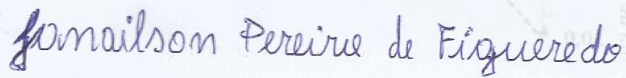 Janailson Pereira de Figueredo